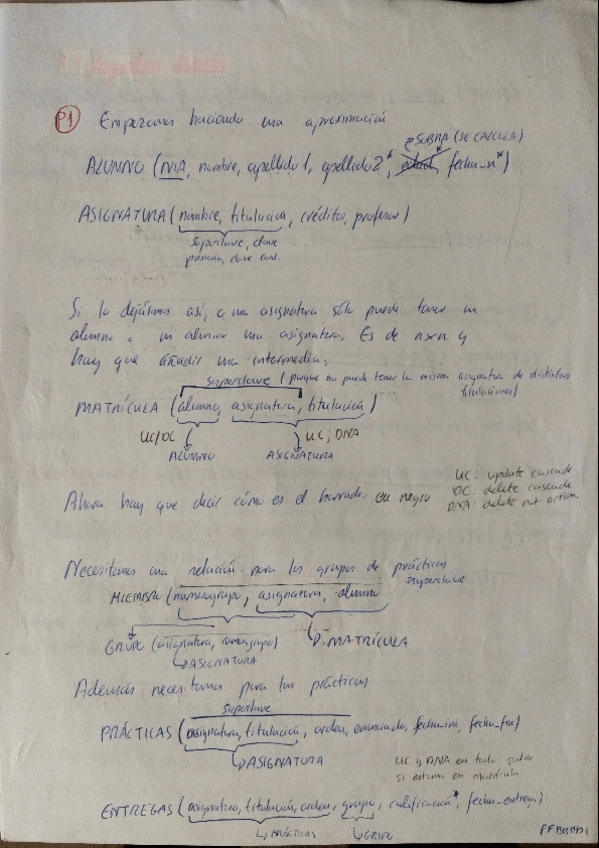 P1 Empezamos haciendo una aproximación
SOBRA (SE CALCULA)
ALUMNO (NIA, nombre, apellido1, apellido2*, edad*, fecha_n*)
ASIGNATURA (nombre, titulación, créditos, profesor)
superclave, clave
primaria, clave cand.
Si lo dejásemos así, a una asignatura sólo puede tener un
alumno o un alumno una asignatura. Es de nxn y
hay que añadir una intermedia.
superclave (porque no puede tener la misma asignatura de distintas
titulaciones)
MATRÍCULA (alumno, asignatura, titulación)
UC/DC UC; DNA
ALUMNO ASIGNATURA
UC: update cascade
DC: delete cascade
Ahora hay que decir cómo es el borrado: en negro
DNA: delete not action.
Necesitamos una relación para los grupos de prácticas
superclave
MIEMBRO (numerogrupo, asignatura, alumno
GRUPO (asignatura, numerogrupo) MATRÍCULA
ASIGNATURA
Además necesitamos para las prácticas
superclave
PRÁCTICAS (asignatura, titulación, orden, enunciado, fecha_ini, fecha_fin)
ASIGNATURA
UC y DNA en todo salvo
si estamos en matrícula
ENTREGAS (asignatura, titulación, orden, grupo, calificación*, fecha_entrega)
PRÁCTICAS GRUPO